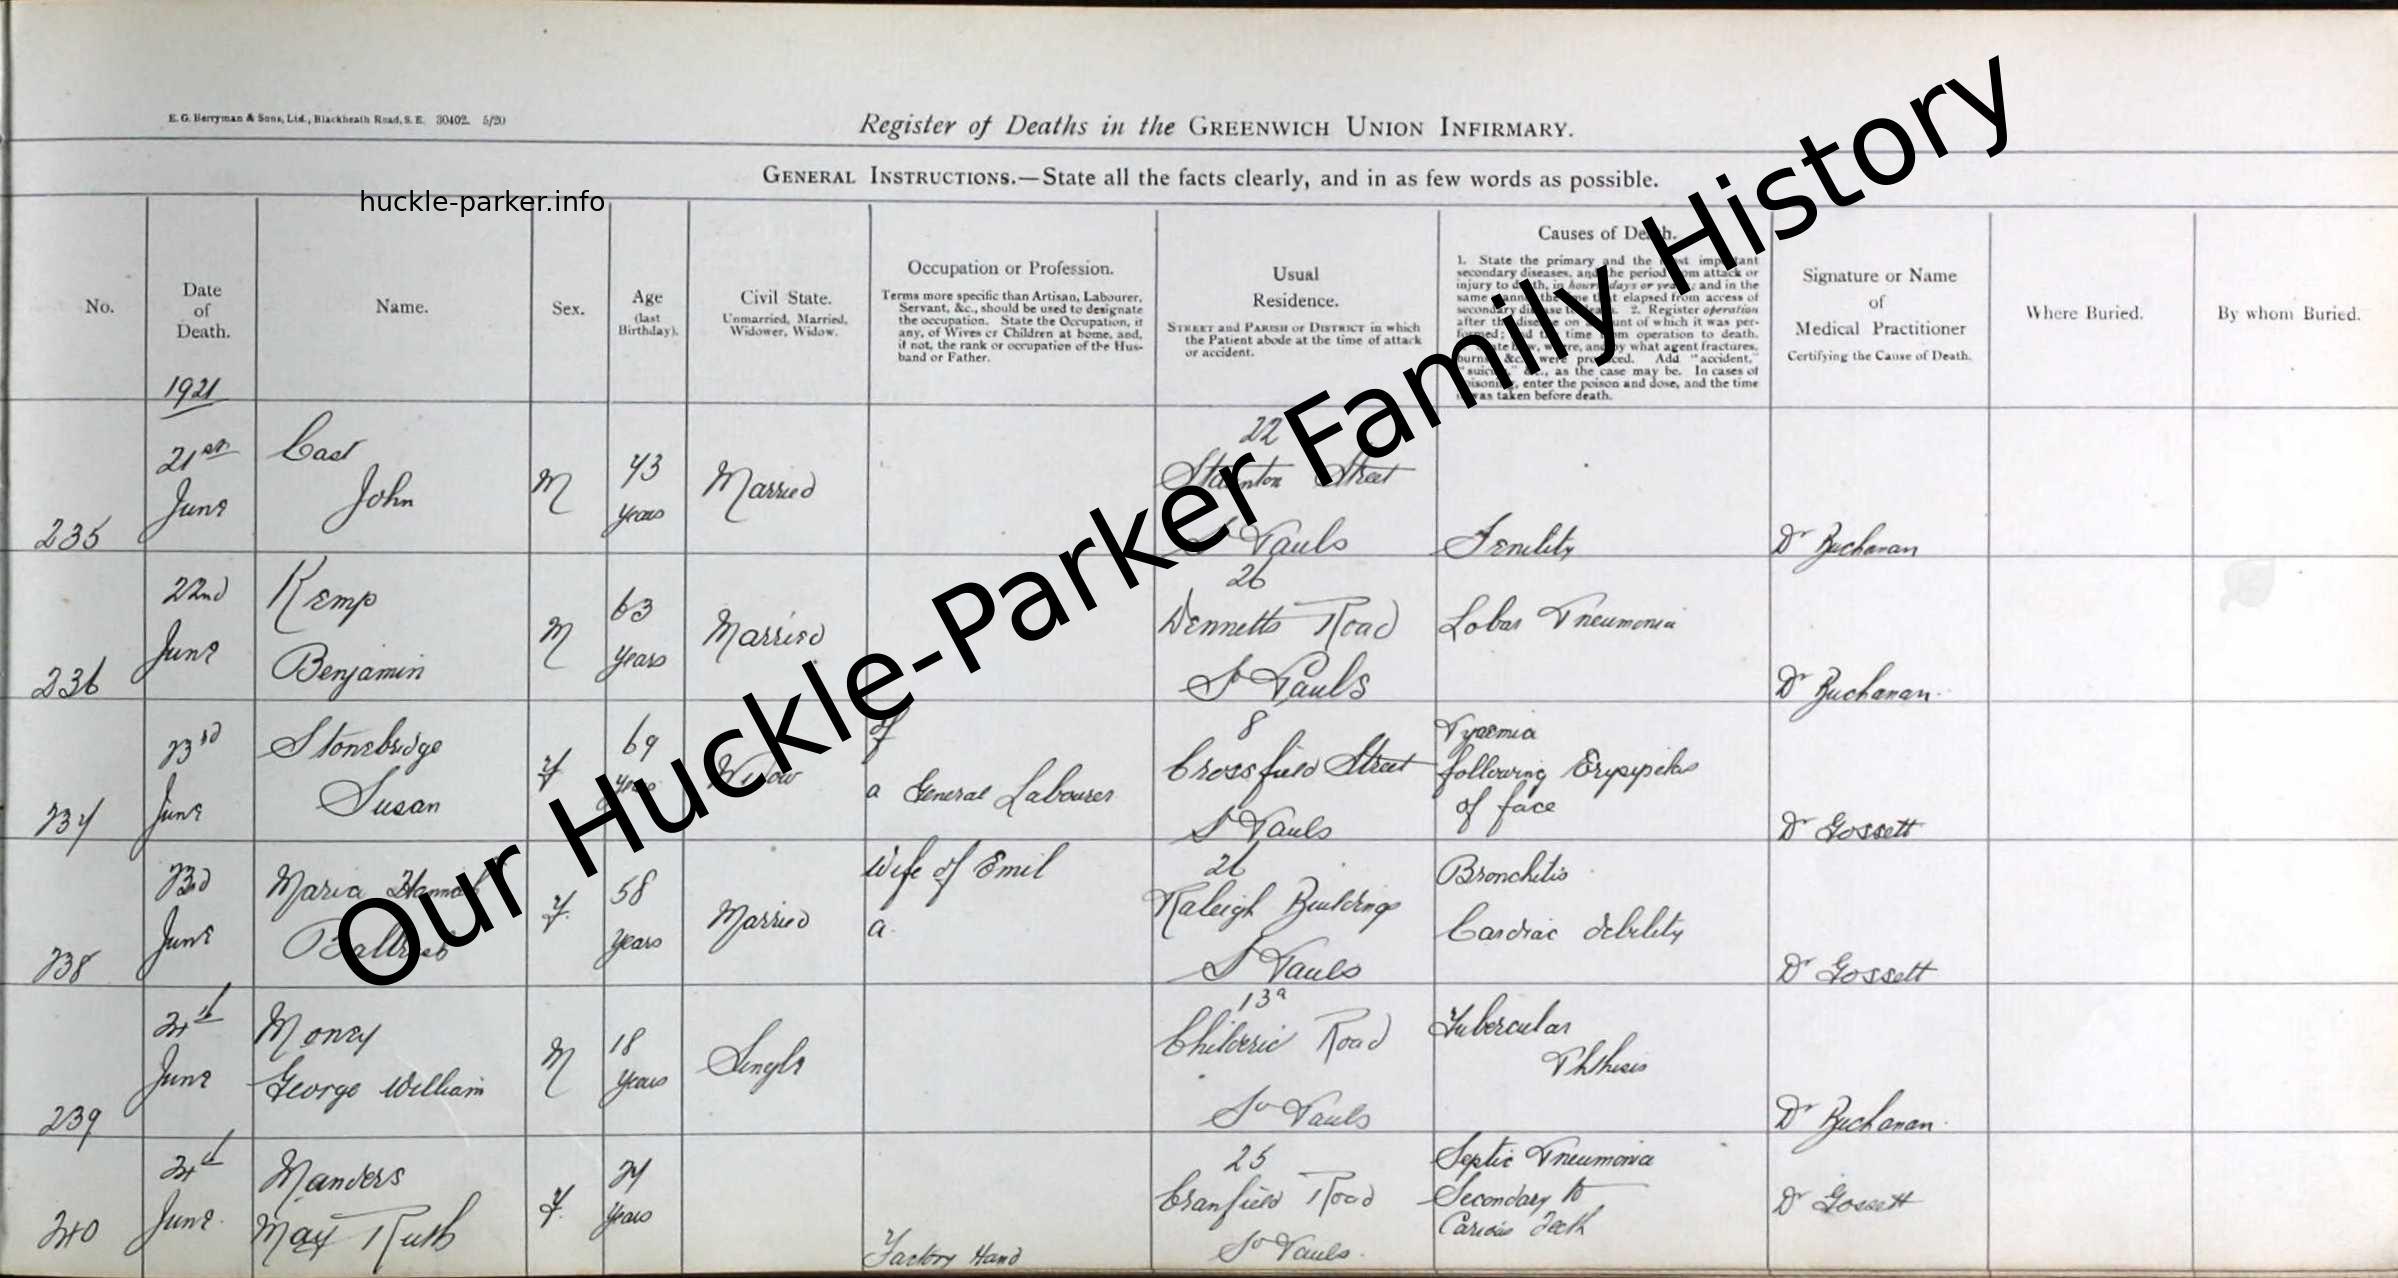 E. G. Berryman & Sons, Ltd., Blackheath Road, S.E. 30402. 5/20
Register of Deaths in the GREENWICH UNION INFIRMARY.
GENERAL INSTRUCTIONS.—State all the facts clearly, and in as few words as possible.
huckle-parker.info
No.
Date
of
Death.
Name.
Sex.
Age
(last
Birthday).
Civil State.
Unmarried, Married,
Widower, Widow.
Occupation or Profession.
Terms more specific than Artisan, Labourer,
Servant, &c., should be used to designate
the occupation. State the Occupation, if
any, of Wives or Children at home, and,
if not, the rank or occupation of the Hus-
band or Father.
Usual
Residence.
STREET and PARISH or DISTRICT in which
the Patient abode at the time of attack
or accident.
Causes of Death.
1. State the primary and the most important
secondary diseases, and the period from attack or
injury to death, in hours, days or years; and in the
same manner the time that elapsed from access of
secondary disease to death. 2. Register operation
after the disease on account of which it was per-
formed; and the time from operation to death.
State how, where, and by what agent fractures,
burns, &c., were produced. Add "accident,"
"suicide," &c., as the case may be. In cases of
poisoning, enter the poison and dose, and the time
it was taken before death.
Signature or Name
of
Medical Practitioner
Certifying the Cause of Death.
Where Buried.
By whom Buried.
1921
235
21st
June
John
M
73
years
Married
22
Staunton Street
St Pauls
Senility
Dr Buchanan
236
22nd
June
Kemp
Benjamin
M
63
years
Married
26
Dennetts Road
St Pauls
Lobar Pneumonia
Dr Buchanan.
237
23rd
June
Stonebridge
Susan
F
69
years
Widow
of
a General Labourer
8
Crossfield Street
St Pauls
Pyaemia
following Erysipelas
of face
Dr Gossett
238
23rd
June
Maria Hannah
F.
58
years
Married
Wife of Emil
a.
26
Raleigh Buildings
St Pauls
Bronchitis
Cardiac debility
Dr Gossett
239
24th
June
Money
George William
M
18
years
Single
13a
Childeric Road
St Pauls
Tubercular
Phthisis
Dr Buchanan.
240
24th
June.
Manders
May Ruth
F.
years
Factory Hand
25
Cranfield Road
St Pauls.
Septic Pneumonia
Secondary to
Carious Teeth
Dr Gossett
Our Huckle-Parker Family History